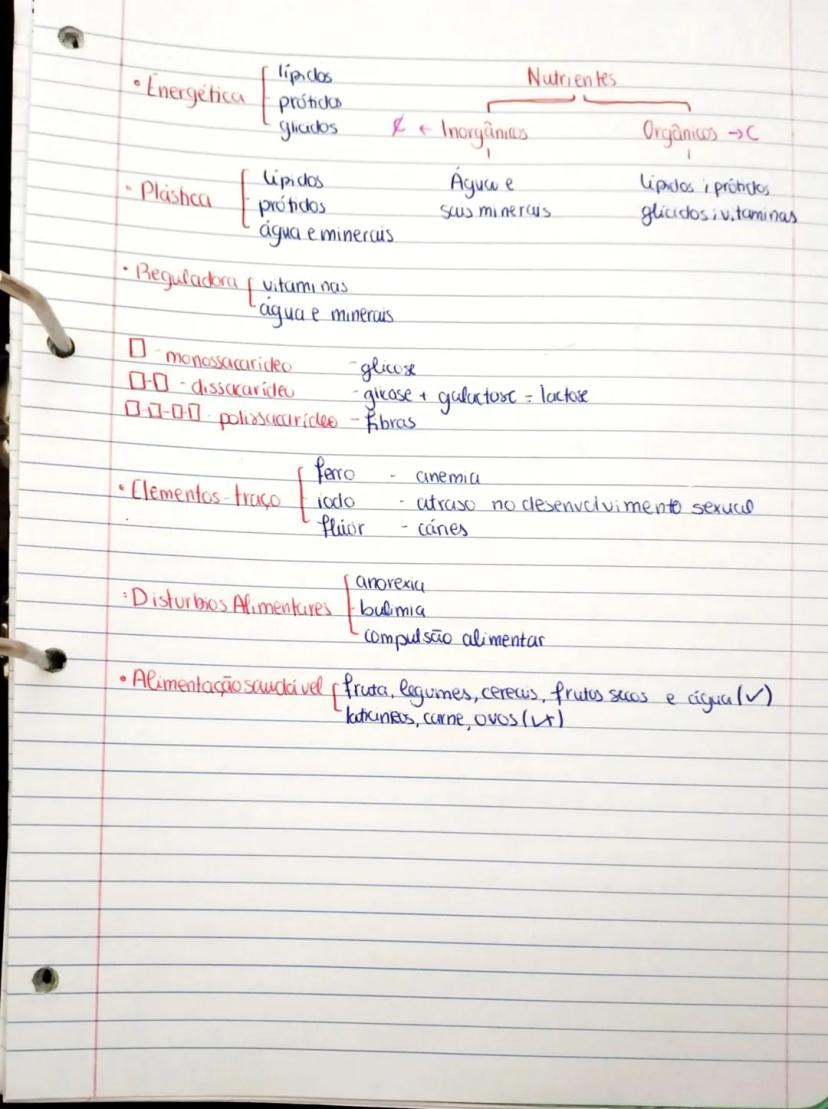 • Energética
lípidos
prótidos
glícidos
Nutrientes
₡ ← Inorgânicos
Orgânicos → C
Água e
sais minerais
lípidos; prótidos
glícidos; vitaminas
• Plástica
lípidos
prótidos
água e minerais
• Reguladora
vitaminas
água e minerais
□ - monossacarídeo - glicose
□-□ - dissacarídeo - glicose + galactose = lactose
□-□-□-□ - polissacarídeo - fibras
• Elementos-traço
ferro - anemia
iodo - atraso no desenvolvimento sexual
flúor - cáries
• Disturbios Alimentares
anorexia
bulimia
compulsão alimentar
• Alimentação saudável
fruta, legumes, cereais, frutos secos e água (✓)
laticíneos, carne, ovos (✓x)